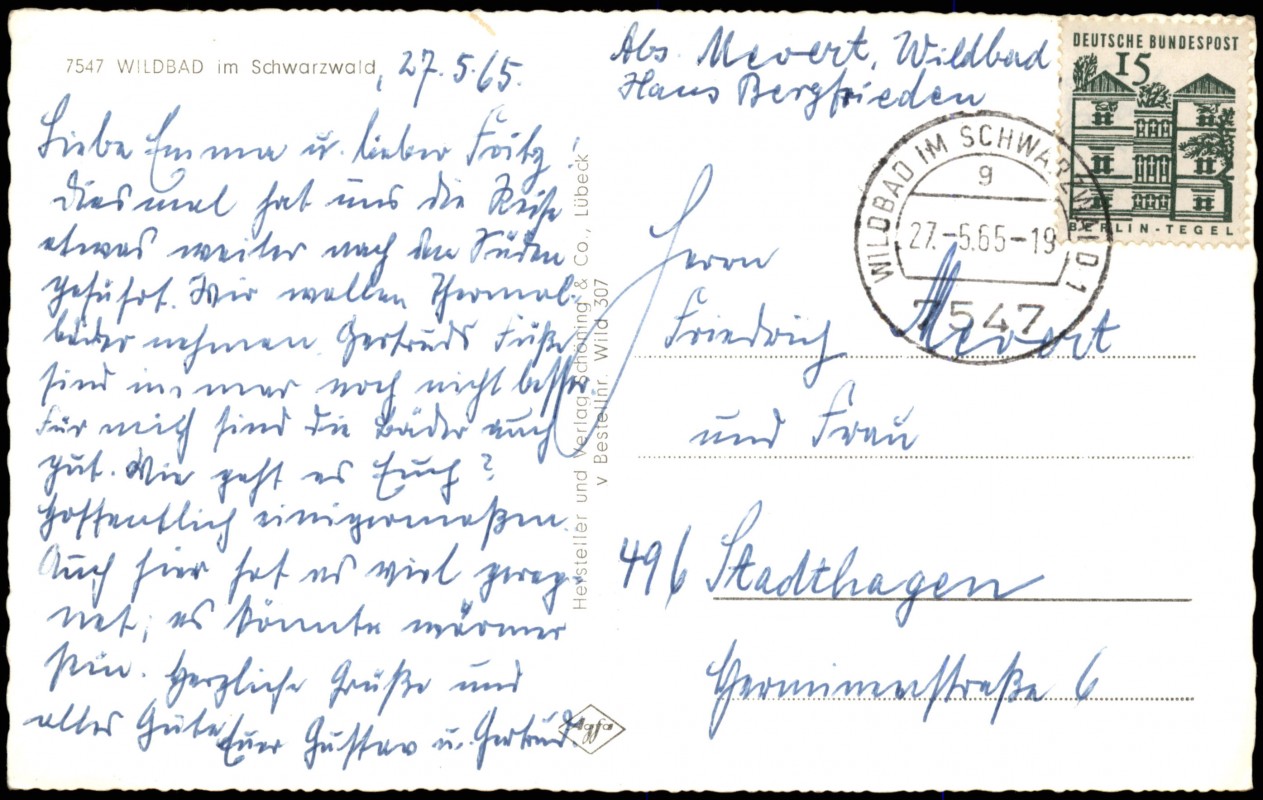 7547 WILDBAD im Schwarzwald, 27.5.65.
Liebe Emma u. lieber Fritz!
Diesmal hat uns die Reise
etwas weiter nach den Süden
geführt. Wir wollen Thermal-
bäder nehmen. Gertruds Füße
sind immer noch nicht besser.
Für mich sind die Bäder auch
gut. Wie geht es Euch?
Hoffentlich einigermaßen.
Auch hier hat es viel gereg-
net, es könnte wärmer
sein. Herzliche Grüße und
alles Gute
Euer Gustav u. Gertrud.
Hersteller und Verlag Schöning & Co., Lübeck
v Bestellnr. Wild 307
Agfa
Abs. Mevert, Wildbad
Haus Bergfrieden
DEUTSCHE BUNDESPOST
15
BERLIN-TEGEL
WILDBAD IM SCHWARZWALD 1
g
27.-5.65-19
7547
Herrn
Friedrich Mevert
und Frau
496 Stadthagen
Germinenstraße 6